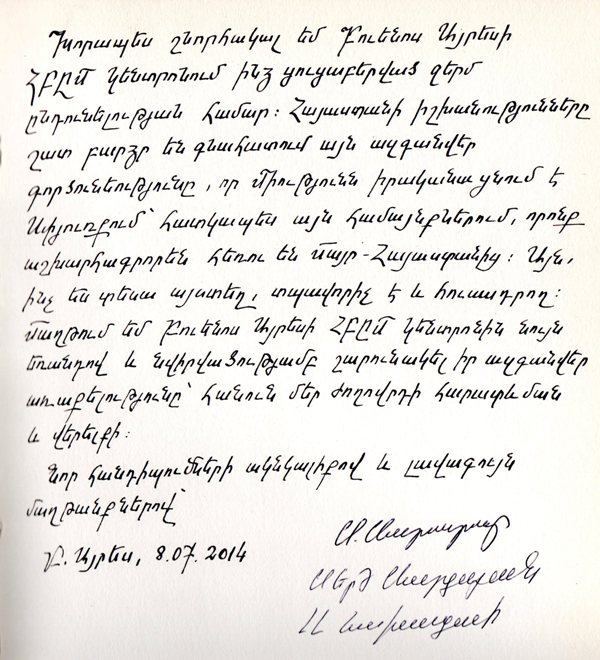 Խորապես շնորհակալ եմ Բուենոս Այրեսի
ՀԲԸՄ կենտրոնում ինձ ցուցաբերված ջերմ
ընդունելության համար: Հայաստանի իշխանությունները
շատ բարձր են գնահատում այն ազգանվեր
գործունեությունը, որ Միությունն իրականացնում է
Սփյուռքում՝ հատկապես այն համայնքներում, որոնք
աշխարհագրորեն հեռու են մայր-Հայաստանից: Այն,
ինչ ես տեսա այստեղ, տպավորիչ է և հուսադրող:
Մաղթում եմ Բուենոս Այրեսի ՀԲԸՄ կենտրոնին նույն
եռանդով և նվիրվածությամբ շարունակել իր ազգանվեր
առաքելությունը՝ հանուն մեր ժողովրդի հարատևման
և վերելքի:
Նոր հանդիպումների ակնկալիքով և լավագույն
մաղթանքներով՝
Բ. Այրես, 8.07.2014
Սերժ Սարգսյան